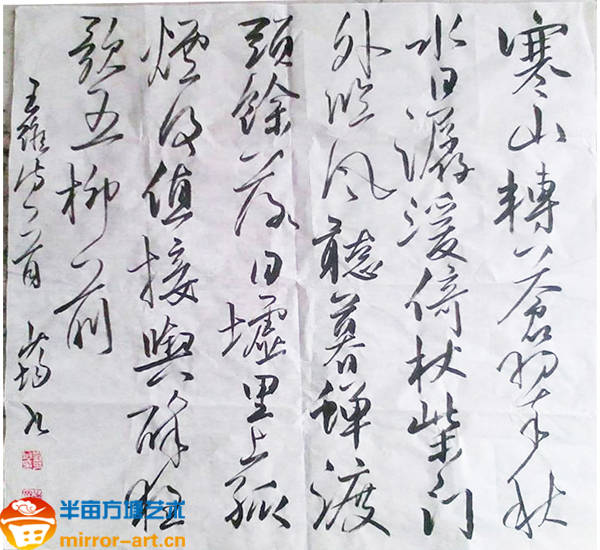 寒山轉蒼翠秋
水日潺湲倚杖柴门
外临风聽暮蟬渡
頭餘落日墟里上孤
煙復值接輿醉狂
歌五柳前
王維诗一首
半亩方塘艺术
mirror-art.cn